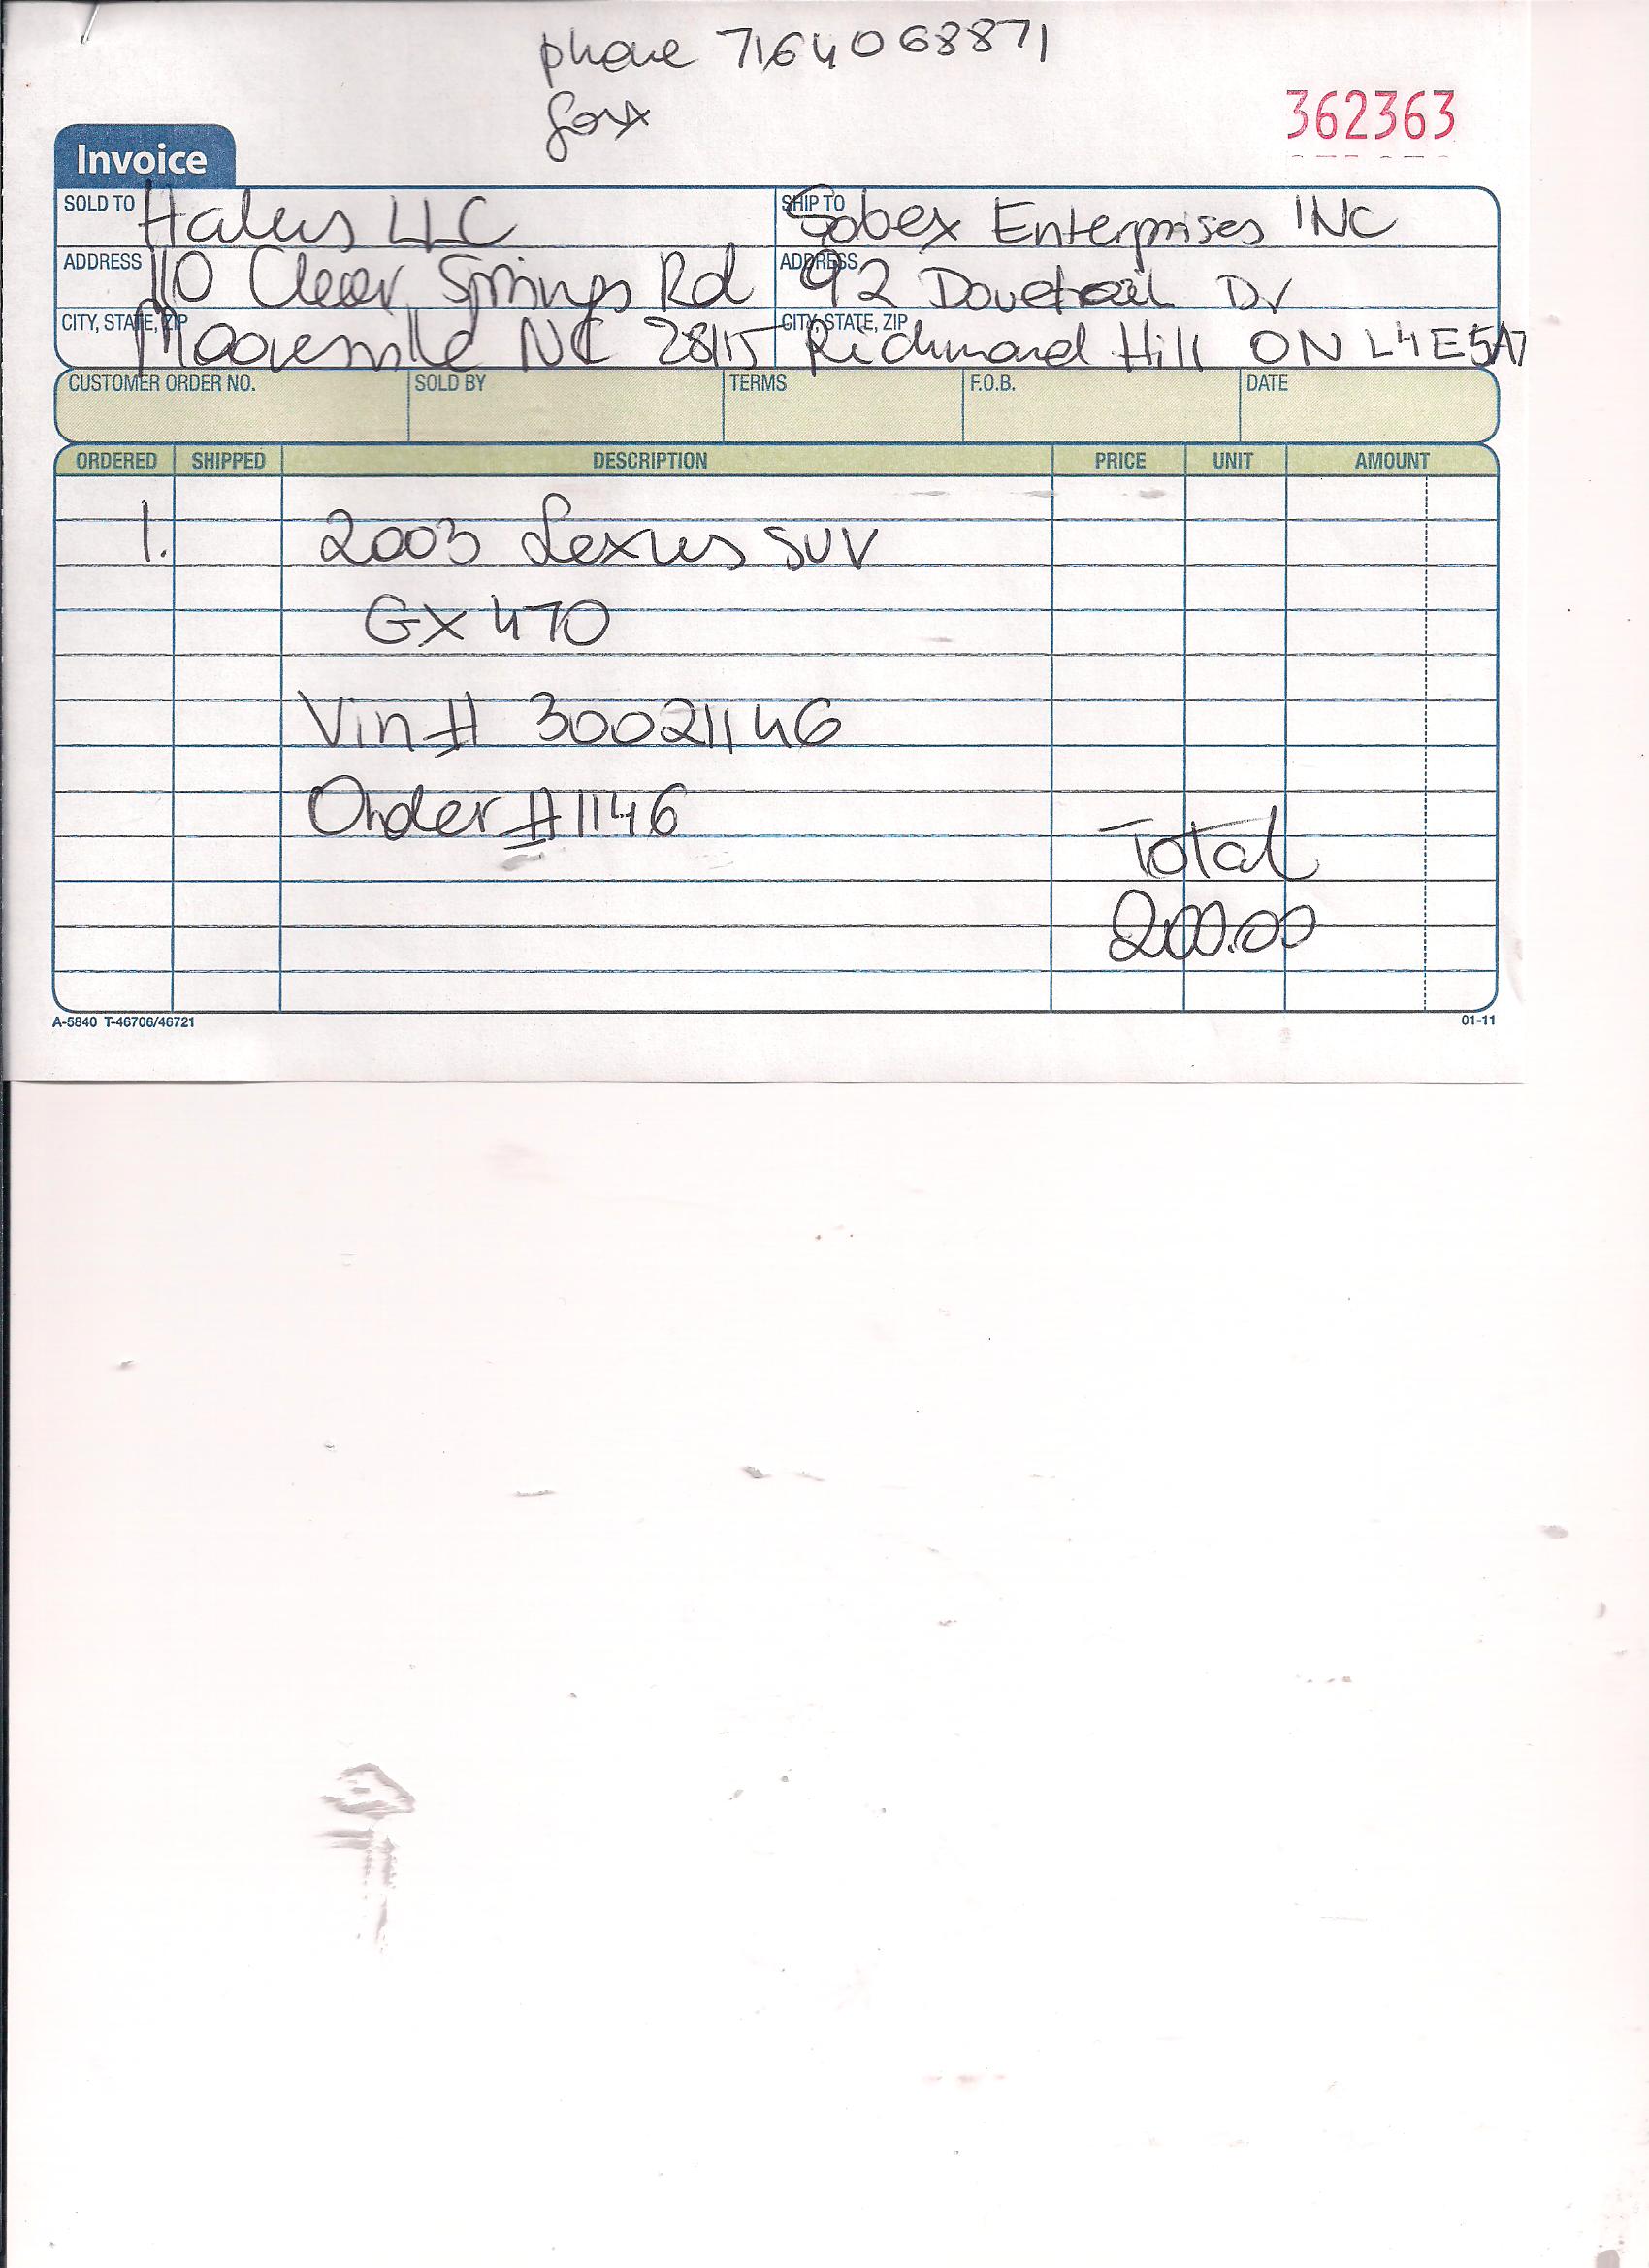 phone 7164068871
fax
362363
Invoice
SOLD TO Halus LLC SHIP TO Sobex Enterprises INC
ADDRESS 110 Clear Springs Rd ADDRESS 92 Dovetail Dr
CITY, STATE, ZIP Mooresville NC 28115 CITY, STATE, ZIP Richmond Hill ON L4E5A7
CUSTOMER ORDER NO. SOLD BY TERMS F.O.B. DATE
ORDERED SHIPPED DESCRIPTION PRICE UNIT AMOUNT
1. 2003 Lexus SUV
GX 470
Vin # 30021146
Order #1146
Total
200.00
A-5840 T-46706/46721 01-11